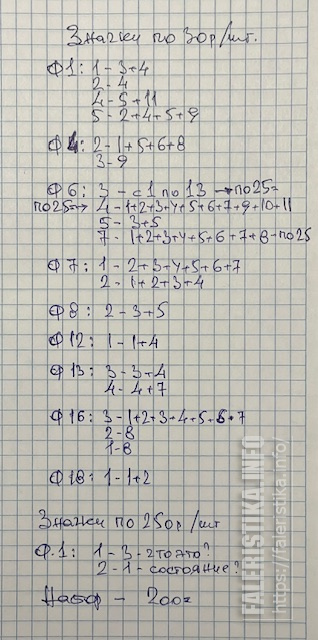 Значки по 30р/шт.
Ф1: 1 - 3+4
2 - 4
4 - 5+11
5 - 2+4+5+9
Ф4: 2 - 1+5+6+8
3 - 9
Ф6: 3 - с 1 по 13 → по 25=
по 25= → 4 - 1+2+3+4+5+6+7+9+10+11
5 - 3+5
7 - 1+2+3+4+5+6+7+8 - по 25
Ф7: 1 - 2+3+4+5+6+7
2 - 1+2+3+4
Ф8: 2 - 3+5
Ф12: 1 - 1+4
Ф13: 3 - 3+4
4 - 4+7
Ф16: 3 - 1+2+3+4+5+6+7
2 - 8
1 - 8
Ф18: 1 - 1+2
Значки по 250р/шт
Ф.1: 1 - 3 - что это?
2 - 1 - состояние?
Набор - 200=
FALERISTIKA.INFO
https://faleristika.info/